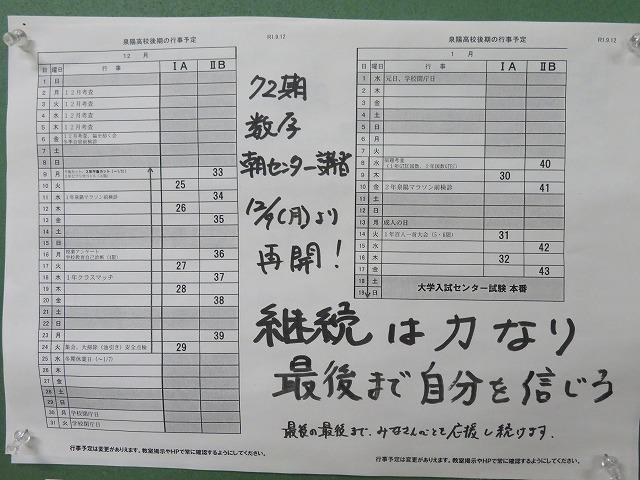 泉陽高校後期の行事予定 R1.9.12
12 月
日 曜日 行 事 ⅠA ⅡB
1 日
2 月 12月考査
3 火 12月考査
4 水 12月考査
5 木 12月考査
6 金
7 土
8 日
9 月 33
10 火 25
11 水 1年泉陽マラソン前検診 34
12 木 26
13 金 35
14 土
15 日
16 月 授業アンケート 36
17 火 27
18 水 1年クラスマッチ 37
19 木 28
20 金 38
21 土
22 日
23 月 39
24 火 集会、大掃除（油引き）安全点検 29
25 水 冬期休業日（～1/7）
26 木
27 金
28 土
29 日
30 月 学校閉庁日
31 火 学校閉庁日
行事予定は変更がありえます。教室掲示やHPで常に確認するようにしてください。
72期
数学
朝センター講習
12/9（月）より
再開！
泉陽高校後期の行事予定 R1.9.12
1 月
日 曜日 行 事 ⅠA ⅡB
1 水 元日、学校閉庁日
2 木
3 金
4 土
5 日
6 月
7 火
8 水 40
9 木 30
10 金 2年泉陽マラソン前検診 41
11 土
12 日
13 月 成人の日
14 火 1年百人一首大会（5・6限） 31
15 水 42
16 木 32
17 金 43
18 土 大学入試センター試験 本番
19 日
継続は力なり
最後まで自分を信じろ
最後の最後まで、みなさんのことを応援し続けます。
行事予定は変更がありえます。教室掲示やHPで常に確認するようにしてください。